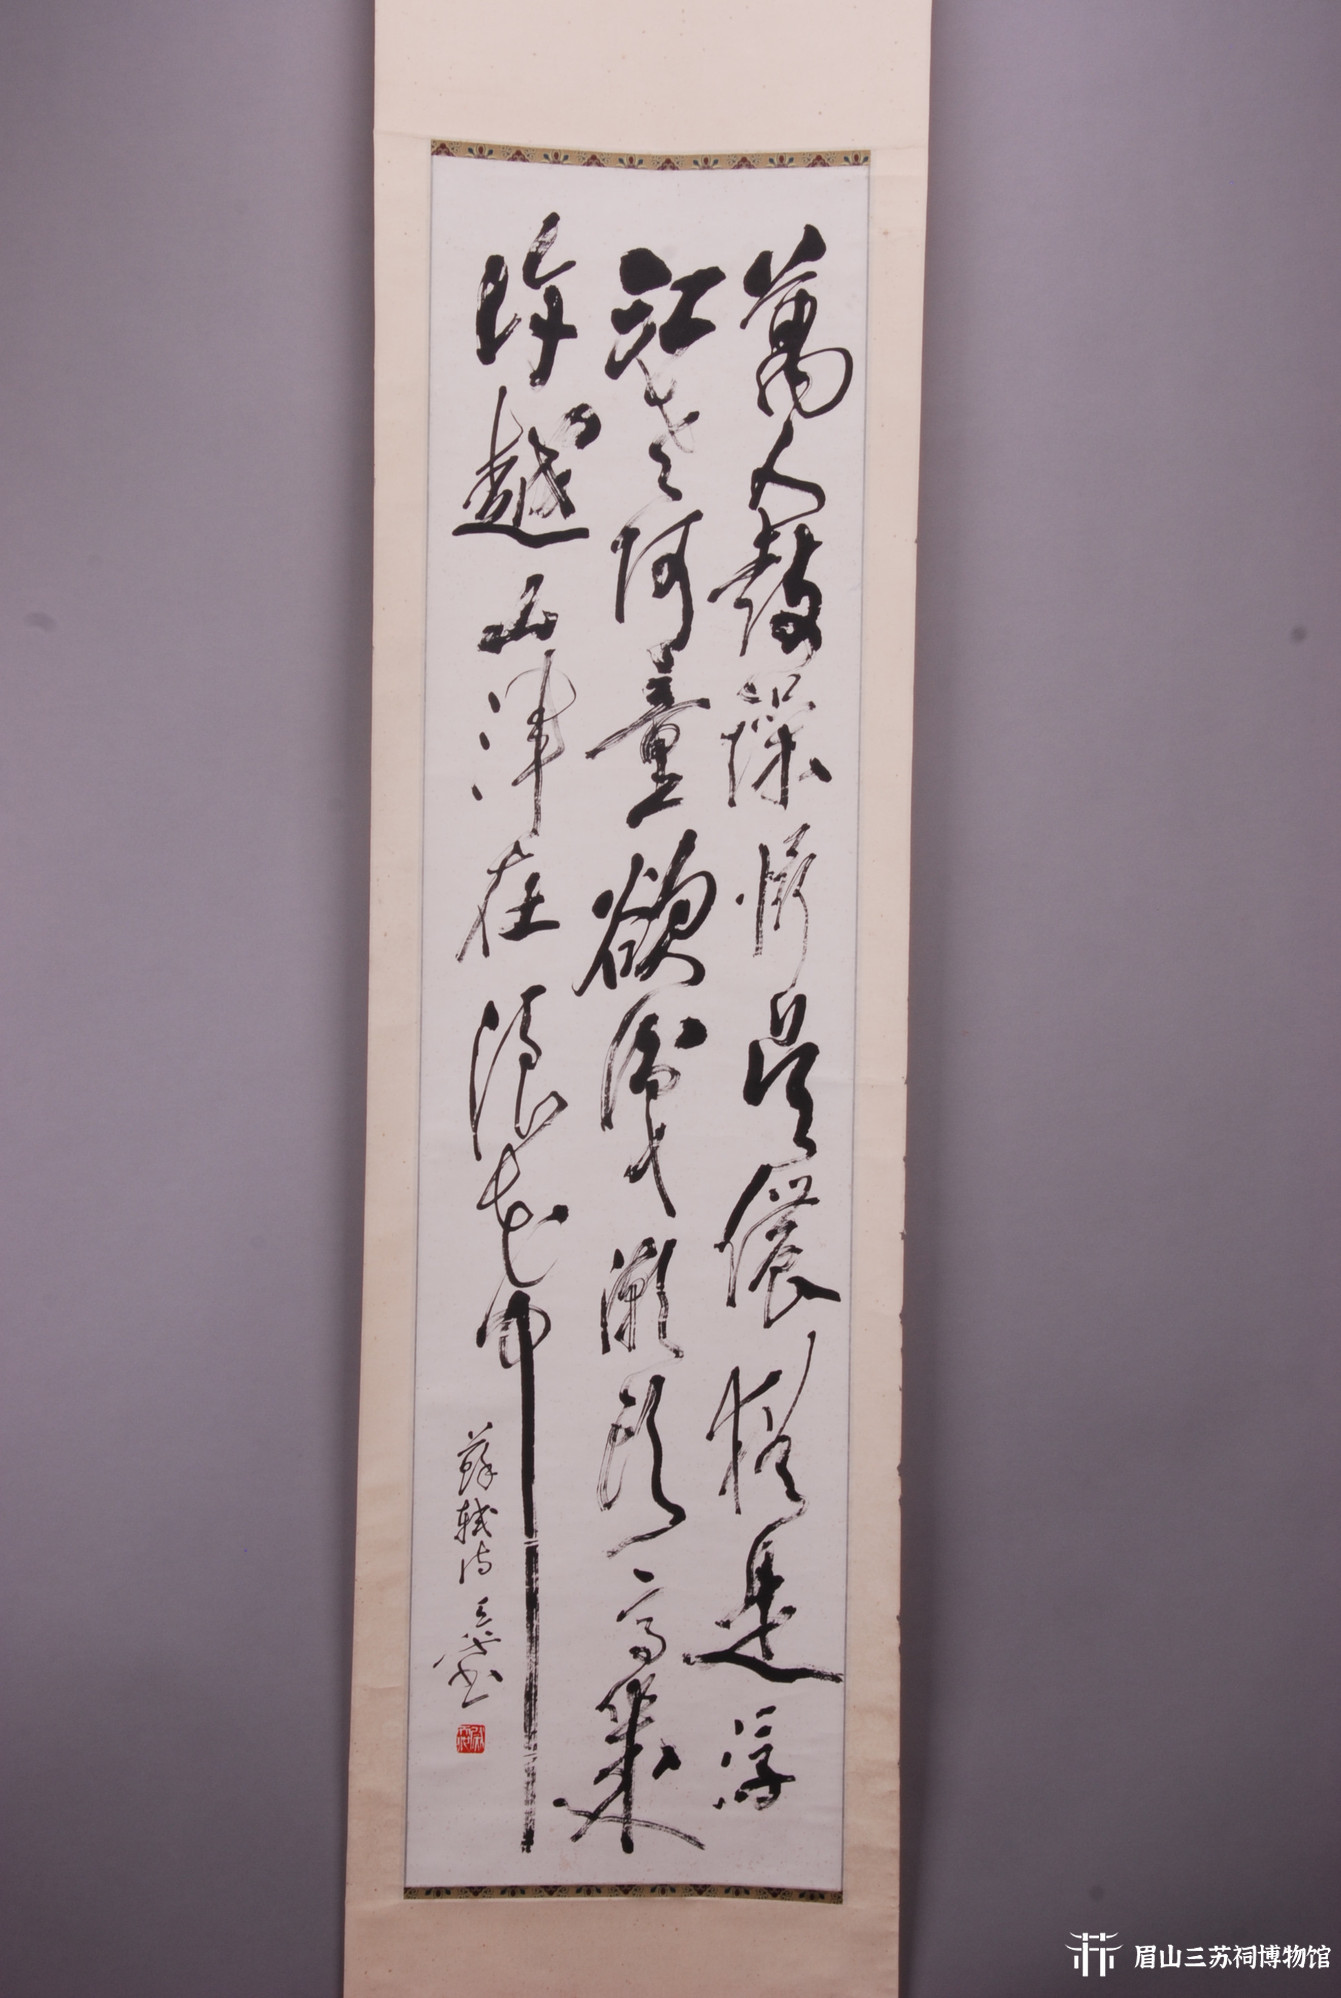 萬人鼓噪懾吳儂猶是浮
江老阿童欲識潮頭高幾
許越山渾在浪花中
蘇軾詩
眉山三苏祠博物馆